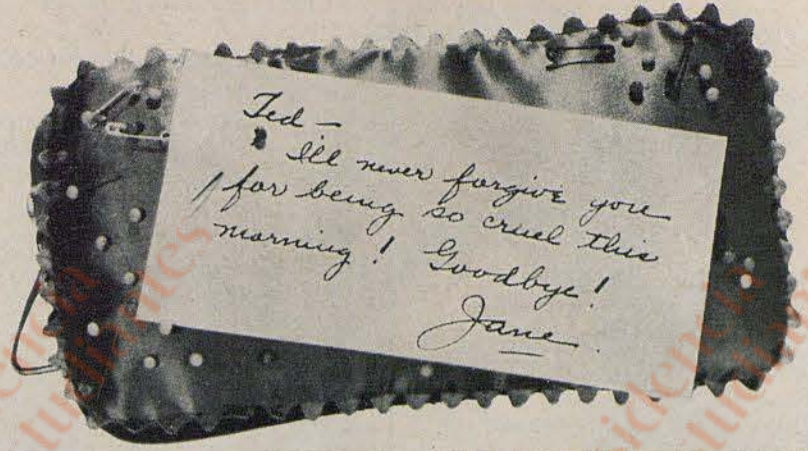 Ted —
I'll never forgive you
for being so cruel this
morning! Goodbye!
Jane.